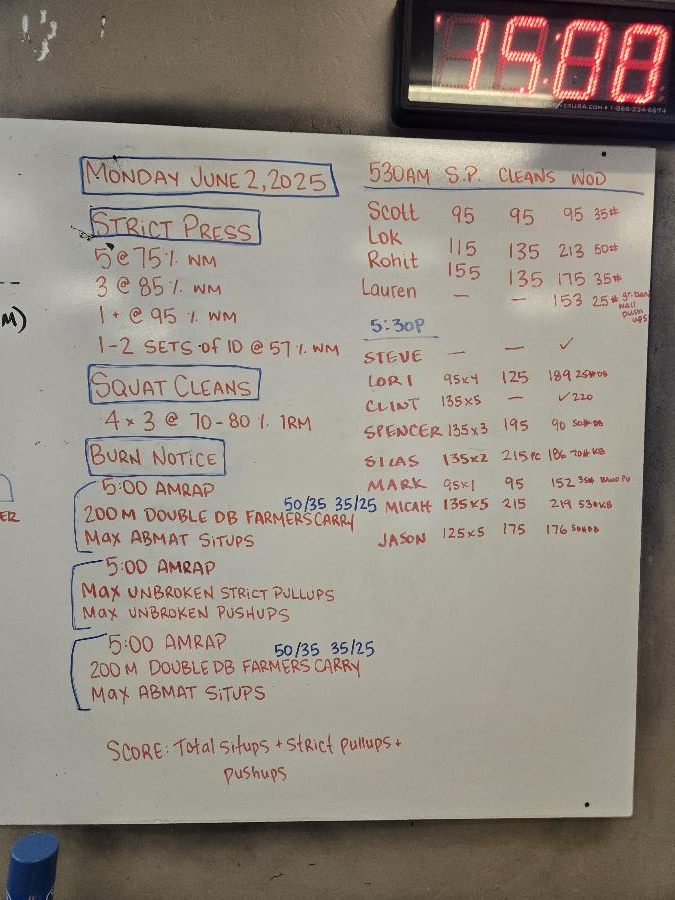 15:00
1-866-334-6674
MONDAY JUNE 2, 2025
STRICT PRESS
5 @ 75% WM
3 @ 85% WM
1+ @ 95% WM
1-2 SETS of 10 @ 57% WM
SQUAT CLEANS
4 x 3 @ 70-80% 1RM
BURN NOTICE
5:00 AMRAP
50/35 35/25
200 M DOUBLE DB FARMERS CARRY
Max ABMAT SITUPS
5:00 AMRAP
Max UNBROKEN STRICT PULLUPS
Max UNBROKEN PUSHUPS
5:00 AMRAP
50/35 35/25
200 M DOUBLE DB FARMERS CARRY
Max ABMAT SITUPS
SCORE: Total situps + strict pullups +
pushups
530AM S.P. CLEANS WOD
Scott 95 95 95 35#
Lok 115 135 213 50#
Rohit 155 135 175 35#
Lauren — — 153 25# wall push ups
5:30P
STEVE — — ✓
LORI 95x4 125 189 25#DB
CLINT 135x5 — ✓220
SPENCER 135x3 195 90 50#DB
SILAS 135x2 215PC 186 70#KB
MARK 95x1 95 152 35#
MICAH 135x5 215 219 53#KB
JASON 125x5 175 176 50#DB
M)
ER